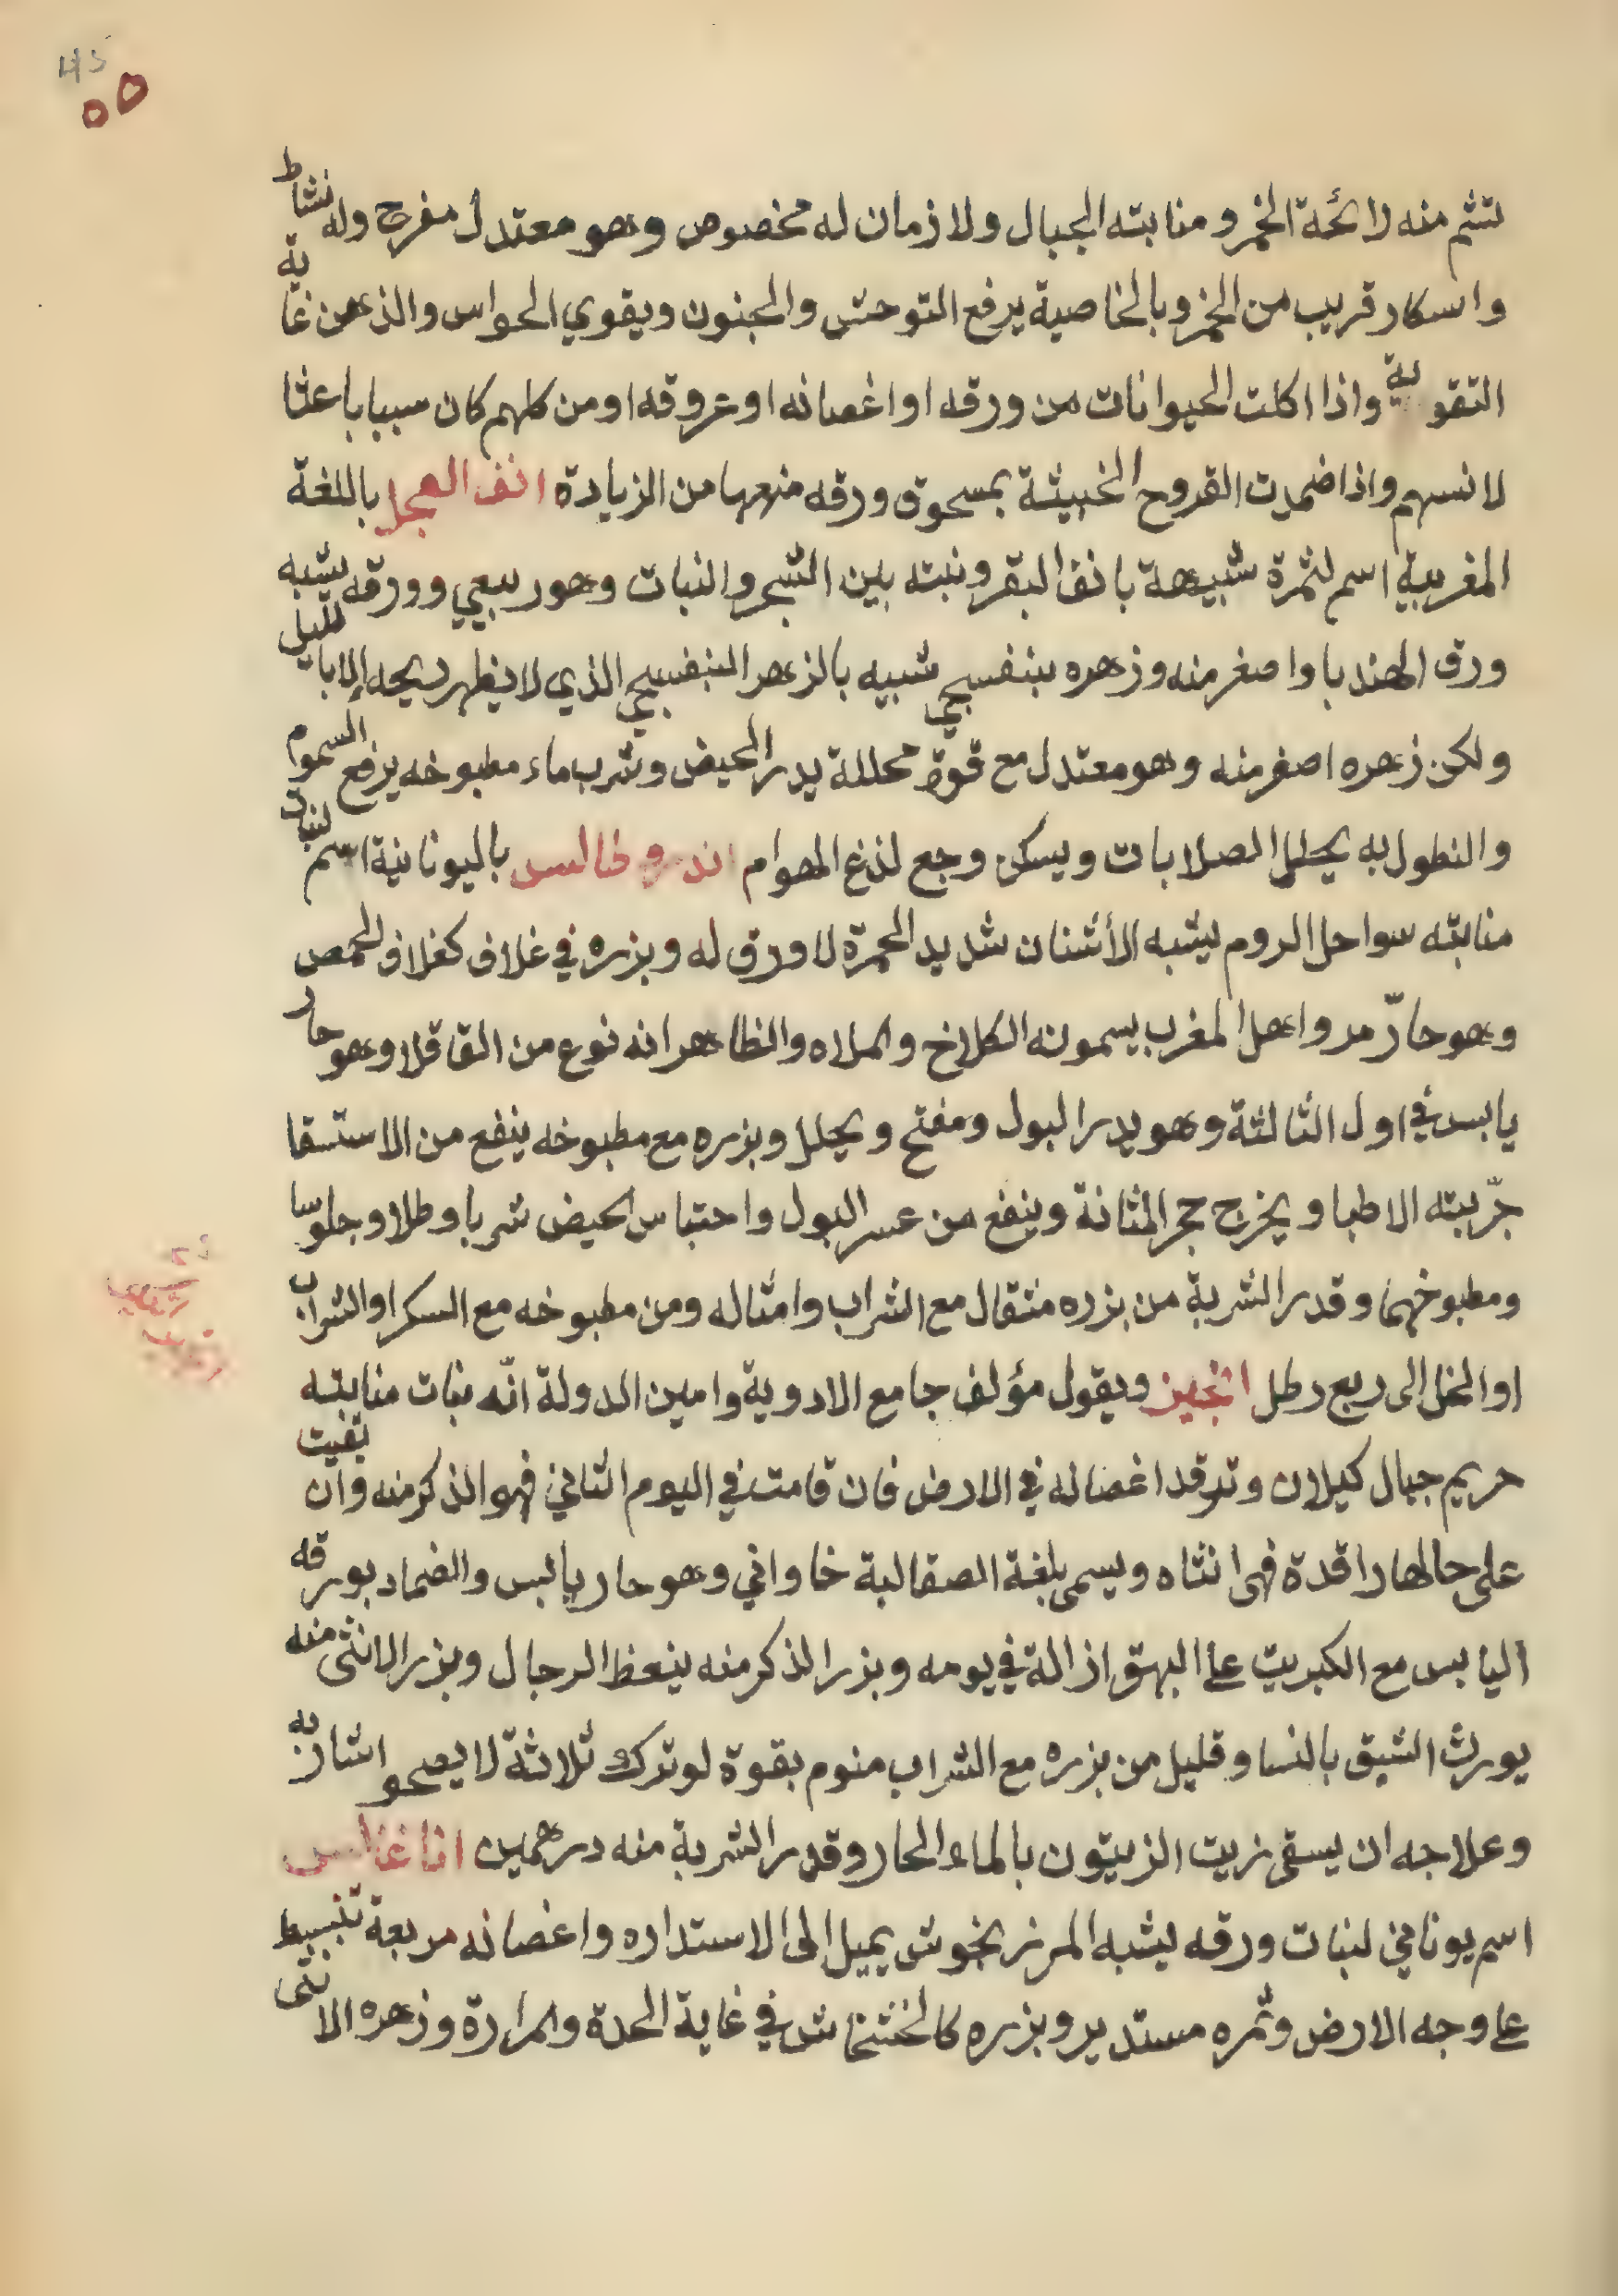 45
٥٥
تشم منه رائحة الخمر ومنابته الجبال ولا زمان له مخصوص وهو معتدل مفرح وله نشاط
واسكار قريب من الخمر وبالخاصية يرفع التوحش والجنون ويقوي الحواس والذهن غاية
التقوية واذا اكلت الحيوانات من ورقه او اغصانه او عروقه او من كلهم كان سببا باعثا
لانسهم واذا ضمدت القروح الخبيثة بمسحوق ورقه منعها من الزيادة انف العجل باللغة
المغربية اسم لثمرة شبيهة بانف البقر ونبته بين الشجر والنبات وهو ربيعي وورقه يشبه
ورق الهندبا واصغر منه وزهره بنفسجي شبيه بالزهر البنفسجي الذي لا يظهر ريحه الا بالليل
ولكن زهره اصغر منه وهو معتدل مع قوة محللة يدر الحيض وشرب ماء مطبوخه يرفع السموم
والنطول به يحلل الصلابات ويسكن وجع لذع الهوام اندروطالس باليونانية اسم لنبات
منابته سواحل الروم يشبه الأشنان شديد الحمرة لا ورق له وبزره في غلاف كغلاف الحمص
وهو حارّ مر واهل المغرب يسمونه الكلاخ والملاه والظاهر انه نوع من القاقلا وهو حار
يابس في اول الثالثة وهو يدر البول ومفتح ويحلل وبزره مع مطبوخه ينفع من الاستسقا
جرّبته الاطبا ويخرج حجر المثانة وينفع من عسر البول واحتباس الحيض شربا وطلا وجلوسا
ومطبوخهما وقدر الشربة من بزره مثقال مع الشراب وامثاله ومن مطبوخه مع السكر او الشراب
او الخل الى ربع رطل انجين ويقول مؤلف جامع الادوية وامين الدولة انّه نبات منابته
حريم جبال كيلان وترقد اغصانه في الارض فان قامت في اليوم الثاني فهو الذكر منه وان بقيت
على حالها راقدة فهي انثاه ويسمى بلغة الصقالبة خاواني وهو حار يابس والضماد بورقه
اليابس مع الكبريت على البهق ازالة في يومه وبزر الذكر منه ينعظ الرجال وبزر الانثى منه
يورث الشبق بالنسا وقليل من بزره مع الشراب منوم بقوة لو ترك ثلاثة لا يصحو اشاربه
وعلاجه ان يسقى زيت الزيتون بالماء الحار وقدر الشربة منه درهمين اناغالس
اسم يوناني لنبات ورقه يشبه المرزنخوش يميل الى الاستداره واغصانه مربعة تنبسط
على وجه الارض وثمره مستدير وبزره كالخشخاش في غاية الحدة والمرارة وزهره الانثى